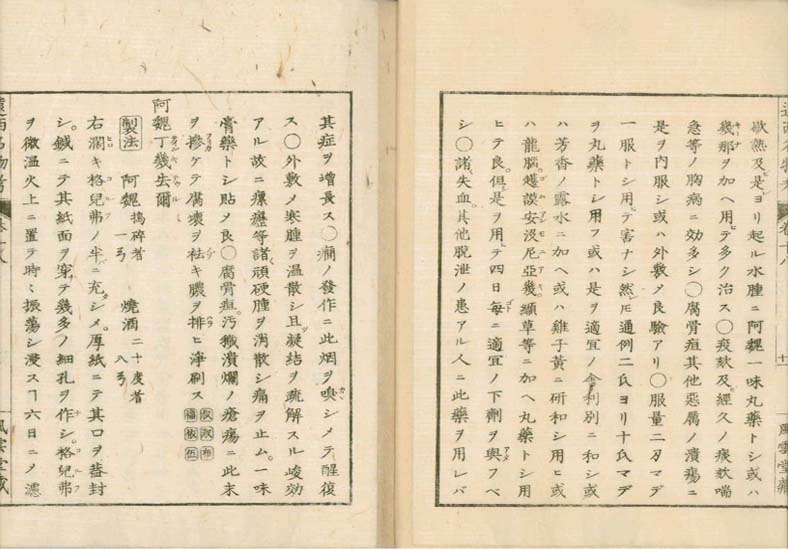 歇熱及ヒ是ヨリ起ル水腫ニ阿魏一味丸藥トシ或ハ
幾那ヲ加ヘ用テ多ク治ス〇痰欬及ヒ經久ノ痰欬喘
急等ノ胸病ニ効多シ〇腐骨疽其他惡厲ノ潰瘍ニ
是ヲ内服シ或ハ外敷メ良驗アリ〇服量二刄マデ
一服トシ用テ害ナシ然ドモ通例二氏ヨリ十氏マデ
ヲ丸藥トシ用フ或ハ是ヲ適宜ノ舎利別ニ和シ或
ハ芳香ノ露水ニ加ヘ或ハ雞子黄ニ研和シ用ヒ或
ハ龍腦、謨安沒尼亞幾、纈草等ニ加ヘ丸藥トシ用
ヒテ良。但シ是ヲ用テ四日毎ニ適宜ノ下劑ヲ與フベ
シ〇諸失血、其他脱泄ノ患アル人ニ此藥ヲ用レバ
十一
風雲堂藏
其症ヲ增長ス〇癇ノ發作ニ此烟ヲ嗅シメテ醒復
ス〇外敷メ寒腫ヲ温散シ且ツ凝結ヲ疏解スル峻効
アル故ニ瘰癧等諸頑硬腫ヲ消散シ痛ヲ止ム。一味
膏藥トシ貼メ良〇腐骨疽、汚穢潰爛ノ瘡瘍ニ此末
ヲ摻ケテ腐壊ヲ祛キ膿ヲ排ヒ淨刷ス
阿魏丁幾去爾
製法 阿魏 搗碎者 一弓 燒酒 二十度者 八弓
右濶キ格兒弗ノ半ニ充シメ。厚紙ニテ其口ヲ葢封
シ。鍼ニテ其紙面ヲ穿テ幾多ノ細孔ヲ作シ。格兒弗
ヲ微温火上ニ置テ時々振蕩シ浸スヿ六日ニメ濾
遠西名物考 卷十八
風雲堂藏